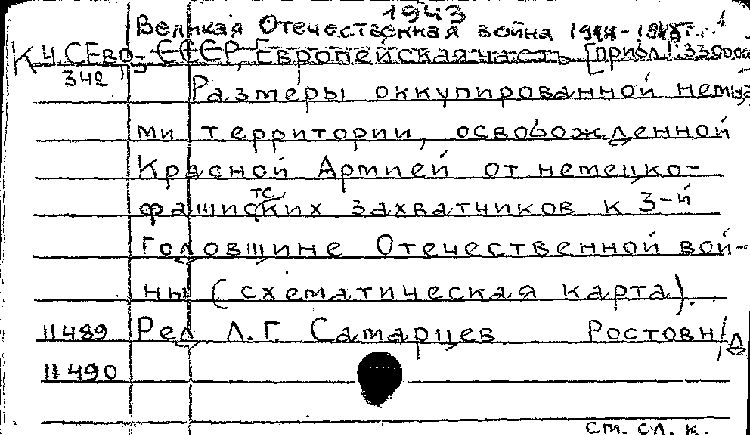 1943
Великая Отечественная война 1941-1945гг. 1
К Ч.СЕвр. СССР, Европейская часть [прибл. 1:3300000
342
Размеры оккупированной немца
ми территории, освобожденной
Красной Армией от немецко-
фашистских захватчиков к 3-й
Годовщине Отечественной вой-
ны (схематическая карта).
11489 Ред Л.Г. Самарцев Ростов н/Д
11490
См. сл. к.